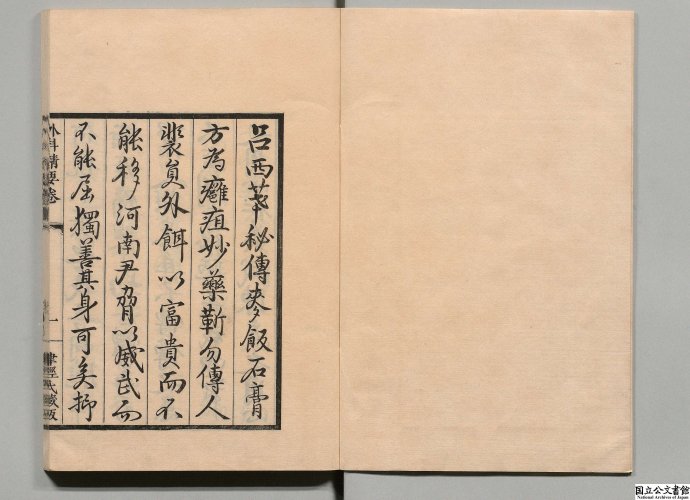 呂西華秘傳麥飯石膏
方為癰疽妙藥靳勿傳人
裴員外餌以富貴而不
能移河南尹脅以威武而
不能屈獨善其身可矣抑
外科精要卷
一
聿經氏藏板
国立公文書館
National Archives of Japan